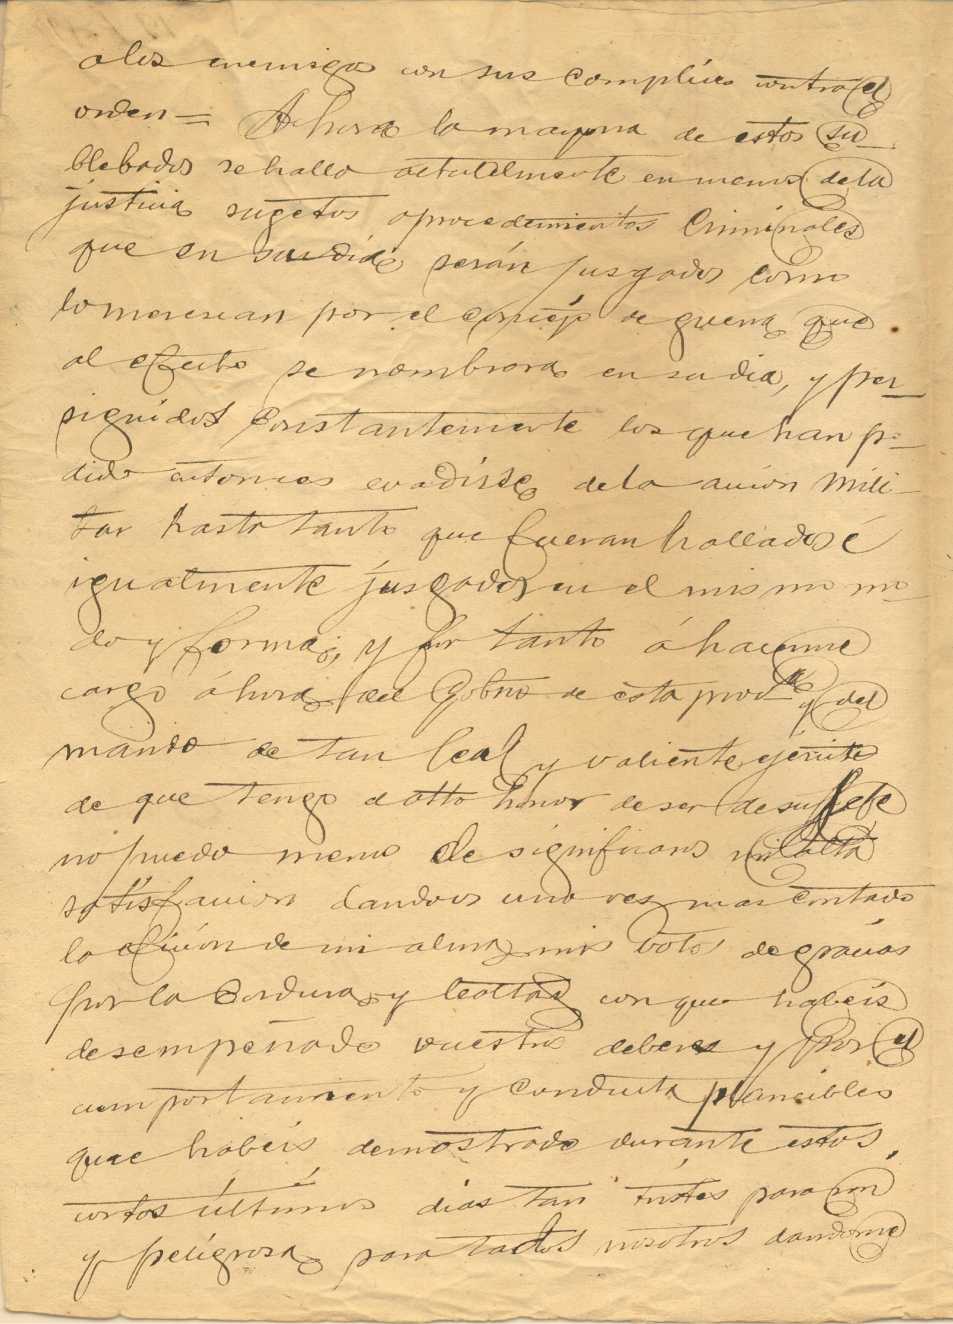 a los enemigos con sus complices contra el
orden = Ahora la mayoria de estos su-
blebados se halla actualmente en manos de la
justicia sugetos a procedimientos Criminales
que en su dia serán jusgados como
lo meresean por el consejo de guerra que
al efecto se nombrara en su dia, y per-
siguidos constantemente los que han po-
dido entonces evadirse de la acción mili-
tar hasta tanto que fueran hallados é
igualmente jusgados en el mismo mo-
do y forma; y por tanto á hacerme
cargo áhora del Gobno de esta prova y del
mando de tan leal y valiente ejército
de que tengo el atto honor de ser de su Jefe
no puedo menos de significaros mi alta
satisfaccion dandoos una ves mas con toda
la efución de mi alma, mis botos de gracias
por la Cordura y lealtad con que habeis
desempeñado vuestros deberes y por el
comportamiento y conducta plancibles
que habeis demostrado durante estos,
cortos últimos dias tan tristes para mi
y peligrosa para todos nosotros dandome